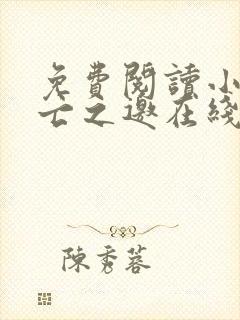 免費閱讀小
亡之邀在綫
陳秀蓉